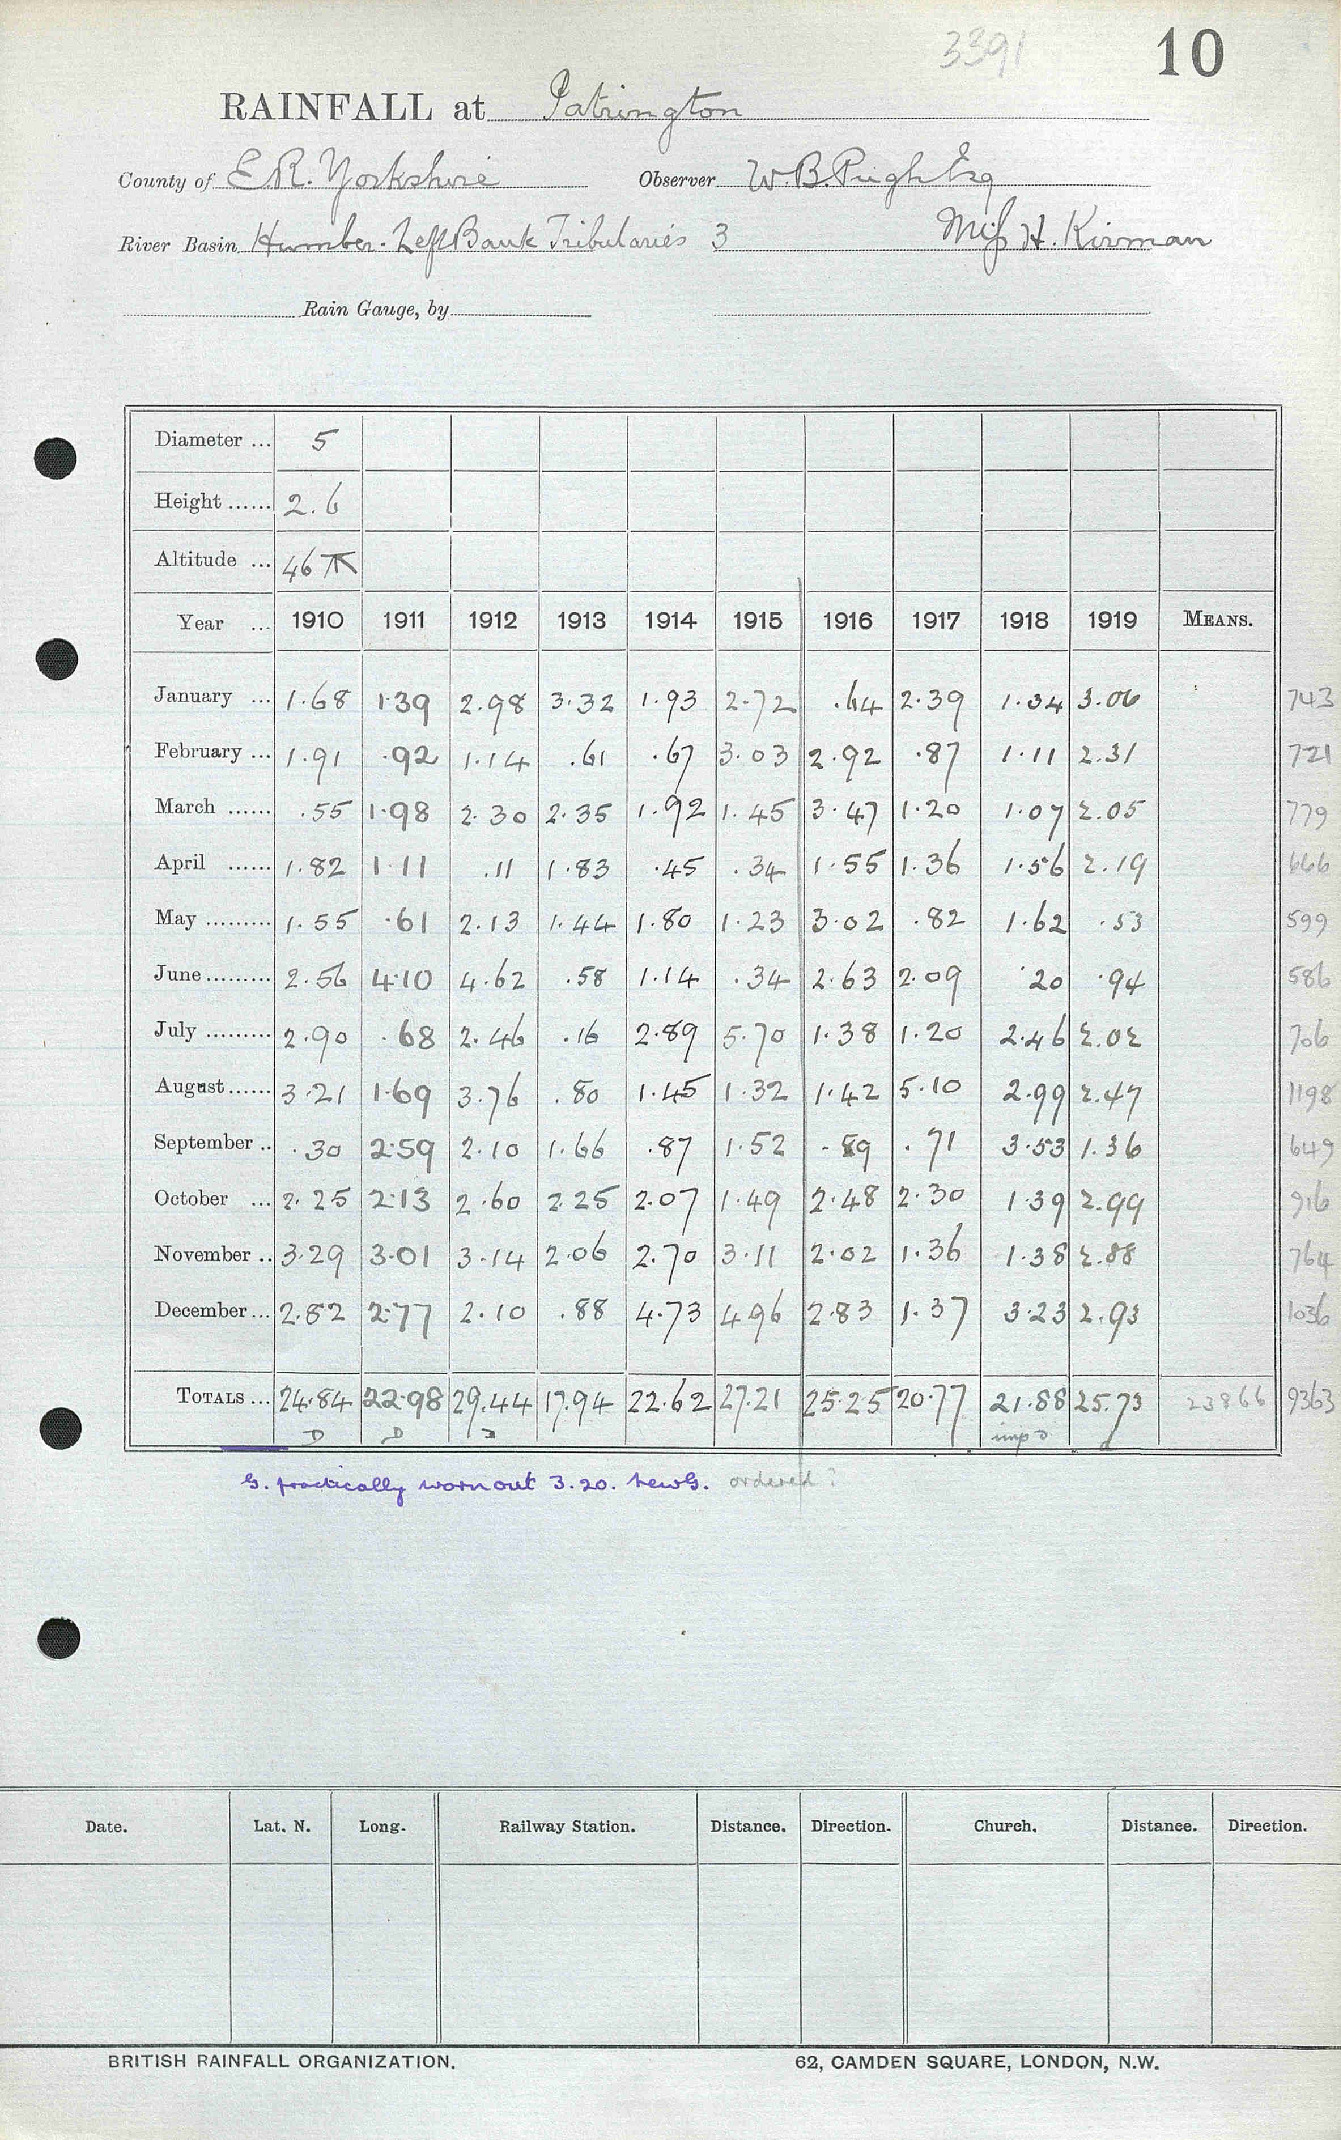 3391 10
RAINFALL at Patrington
County of E.R. Yorkshire Observer W.B. Pugh Esq
River Basin Humber. Left Bank Tributaries 3 Miss H. Kirman
Rain Gauge, by
Diameter ... 5
Height ...... 2.6
Altitude ... 46
Year ... 1910 1911 1912 1913 1914 1915 1916 1917 1918 1919 MEANS.
January ... 1.68 1.39 2.98 3.32 1.93 2.72 .64 2.39 1.34 3.06 743
February ... 1.91 .92 1.14 .61 .67 3.03 2.92 .87 1.11 2.31 721
March ...... .55 1.98 2.30 2.35 1.92 1.45 3.47 1.20 1.07 2.05 779
April ...... 1.82 1.11 .11 1.83 .45 .34 1.55 1.36 1.56 2.19 666
May ......... 1.55 .61 2.13 1.44 1.80 1.23 3.02 .82 1.62 .53 599
June ......... 2.56 4.10 4.62 .58 1.14 .34 2.63 2.09 .20 .94 586
July ......... 2.90 .68 2.46 .16 2.89 5.70 1.38 1.20 2.46 2.02 706
August ...... 3.21 1.69 3.76 .80 1.45 1.32 1.42 5.10 2.99 2.47 1198
September .. .30 2.59 2.10 1.66 .87 1.52 .89 .71 3.53 1.36 649
October ... 2.25 2.13 2.60 2.25 2.07 1.49 2.48 2.30 1.39 2.99 916
November .. 3.29 3.01 3.14 2.06 2.70 3.11 2.02 1.36 1.38 2.88 764
December ... 2.82 2.77 2.10 .88 4.73 4.96 2.83 1.37 3.23 2.93 1036
TOTALS ... 24.84 22.98 29.44 17.94 22.62 27.21 25.25 20.77 21.88 25.73 23866 9363
D D D imp D
G. practically worn out 3.20. New G. ordered?
Date. Lat. N. Long. Railway Station. Distance. Direction. Church. Distance. Direction.
BRITISH RAINFALL ORGANIZATION. 62, CAMDEN SQUARE, LONDON, N.W.